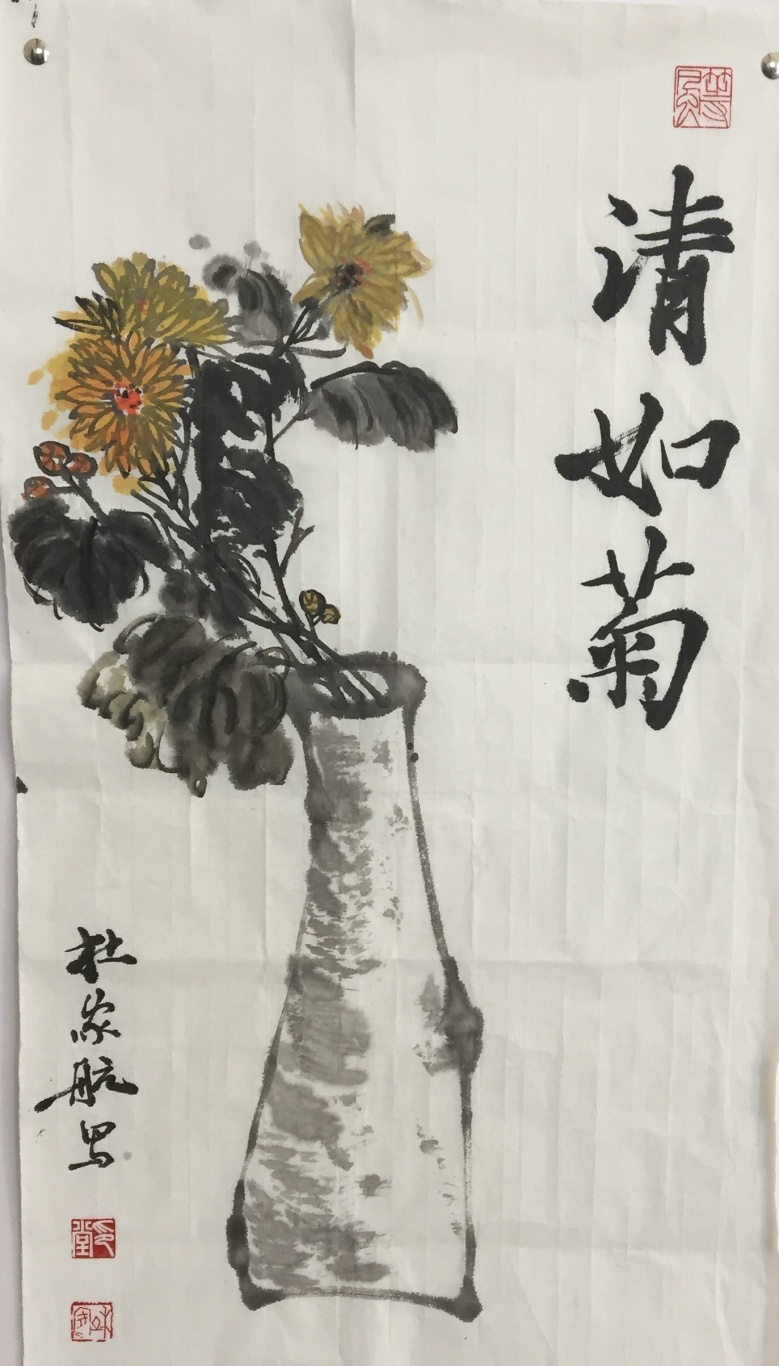 清如菊
杜家航写